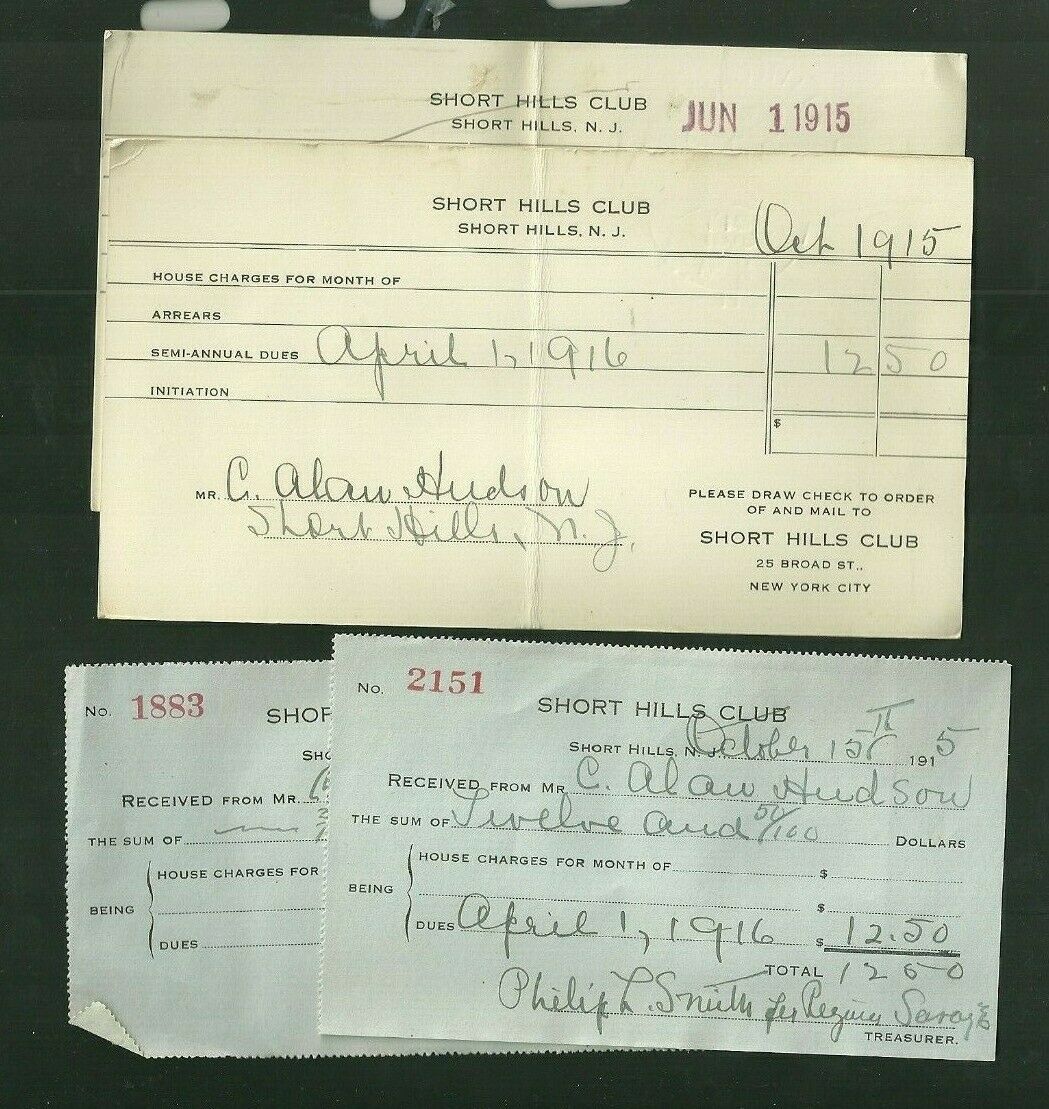 SHORT HILLS CLUB
SHORT HILLS, N. J.
JUN 1 1915
SHORT HILLS CLUB
SHORT HILLS, N. J.
Oct 1915
HOUSE CHARGES FOR MONTH OF
ARREARS
SEMI-ANNUAL DUES April 1, 1916 12 50
INITIATION
$
MR. C. Alan Hudson
Short Hills, N. J.
PLEASE DRAW CHECK TO ORDER
OF AND MAIL TO
SHORT HILLS CLUB
25 BROAD ST.,
NEW YORK CITY
No. 1883
SHOR
SHO
RECEIVED FROM MR.
THE SUM OF
HOUSE CHARGES FOR
BEING
DUES
No. 2151
SHORT HILLS CLUB
SHORT HILLS, N. J. October 15th 1915
RECEIVED FROM MR. C. Alan Hudson
THE SUM OF Twelve and 50/100 DOLLARS
HOUSE CHARGES FOR MONTH OF $
BEING $
DUES April 1, 1916 $ 12.50
TOTAL 12 50
Philip L. Smith per
TREASURER.